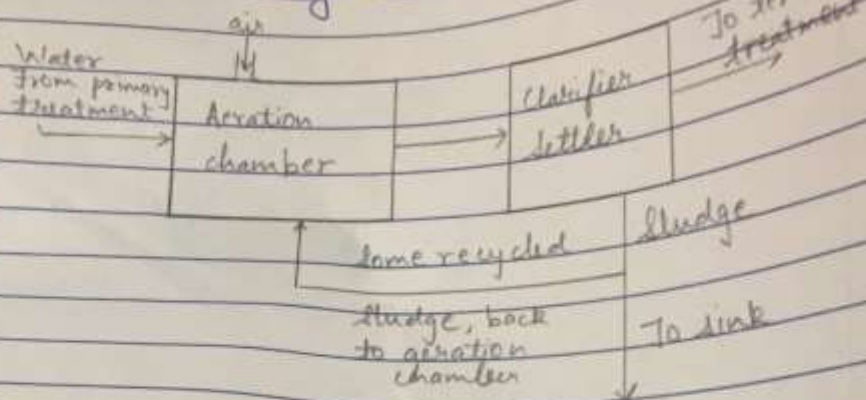 air
Water
from primary
treatment
Aeration
chamber
Clarifier
Settler
To
treatment
Some recycled
Sludge, back
to aeration
chamber
Sludge
To sink